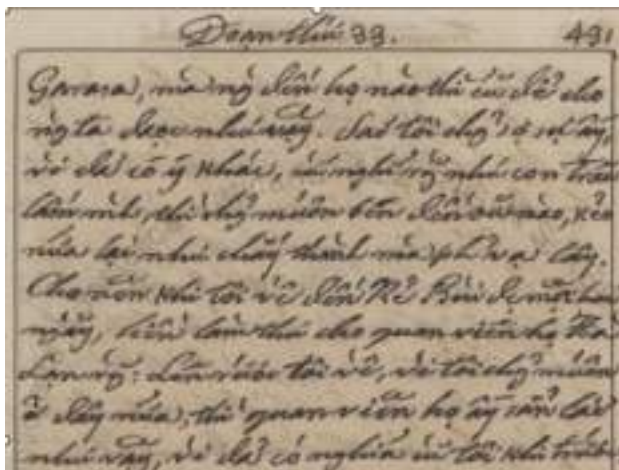 Đoạn thứ 33. 431
Garaxa, mà ng̃ đến họ nào thì cũ để cho
ng̃ ta được như vậy. Saõ tôi chg̉ sợ sự ấy,
vì đã có ý khác, cũ nghĩ rg̃ như con trâu
lấm mình, thì chg̉ muốn đến đâu nào, kẻo
nữa lại như cháy thành mà phải vạ lây.
Cho nên khi tôi về đến Kẻ Bùi dc̣ một hai
ngày, liền làm thư cho quan viên họ
rg̃: Đến rước tôi về, vì tôi chg̉ muốn
ở đây nữa, thì quan viên họ ấy
như vậy, vì đã có nghĩa cũ tôi khi trước